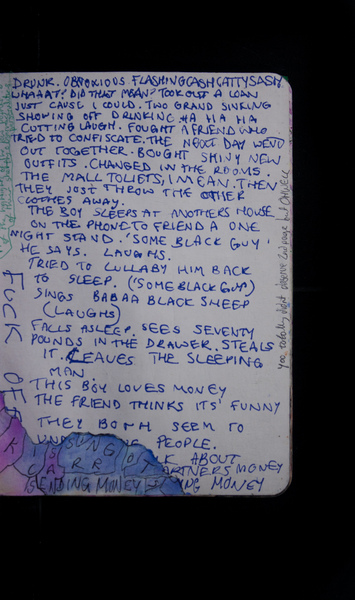 DRUNK. OBNOXIOUS FLASHINGCASHCATTYSASSY
WHAAAT? DID THAT MEAN? TOOK OUT A LOAN
JUST CAUSE I COULD. TWO GRAND SINKING
SHOWING OFF DRINKING HA HA HA
CUTTING LAUGH. FOUGHT A FRIEND WHO
TRIED TO CONFISCATE. THE NEXT DAY WEND
OUT TOGETHER. BOUGHT SHINY NEW
OUTFITS. CHANGED IN THE ROOMS.
THE MALL TOLIETS, I MEAN. THEN
THEY JUST THROW THE OTHER
CLOTHES AWAY.
THE BOY SLEEPS AT ANOTHERS HOUSE
ON THE PHONE TO FRIEND A ONE
NIGHT STAND. 'SOME BLACK GUY'
HE SAYS. LAUGHS.
TRIED TO LULLABY HIM BACK
TO SLEEP. ('SOME BLACK GUY')
SINGS BABAA BLACK SHEEP
(LAUGHS)
FALLS ASLEEP. SEES SEVENTY
POUNDS IN THE DRAWER. STEALS
IT. LEAVES THE SLEEPING
MAN
THIS BOY LOVES MONEY
THE FRIEND THINKS ITS' FUNNY
THEY BOTH SEEM TO
PEOPLE.
ABOUT
PARTNERS MONEY
SPENDING MONEY MONEY
FUCK OFF
you totally didn't deserve 2nd page but OHWELL